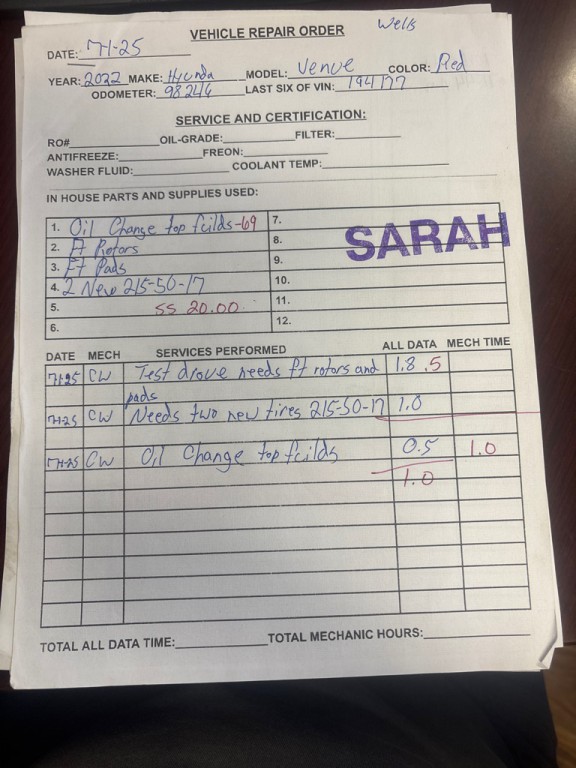 VEHICLE REPAIR ORDER Wells
DATE: 7-1-25
YEAR: 2022 MAKE: Hyunda MODEL: Venue COLOR: Red
ODOMETER: 98246 LAST SIX OF VIN: 194177
SERVICE AND CERTIFICATION:
RO# OIL-GRADE: FILTER:
ANTIFREEZE: FREON:
WASHER FLUID: COOLANT TEMP:
IN HOUSE PARTS AND SUPPLIES USED:
1. Oil Change top fcilds-69 7.
2. Ft Rotors 8.
SARAH
3. Ft Pads 9.
4. 2 New 215-50-17 10.
5. SS 20.00 11.
6. 12.
DATE MECH SERVICES PERFORMED ALL DATA MECH TIME
7-1-25 CW Test drove needs ft rotors and 1.8 .5
pads
7-1-25 CW Needs two new tires 215-50-17 1.0
7-1-25 CW Oil Change top fcilds 0.5 1.0
1.0
TOTAL ALL DATA TIME: TOTAL MECHANIC HOURS: